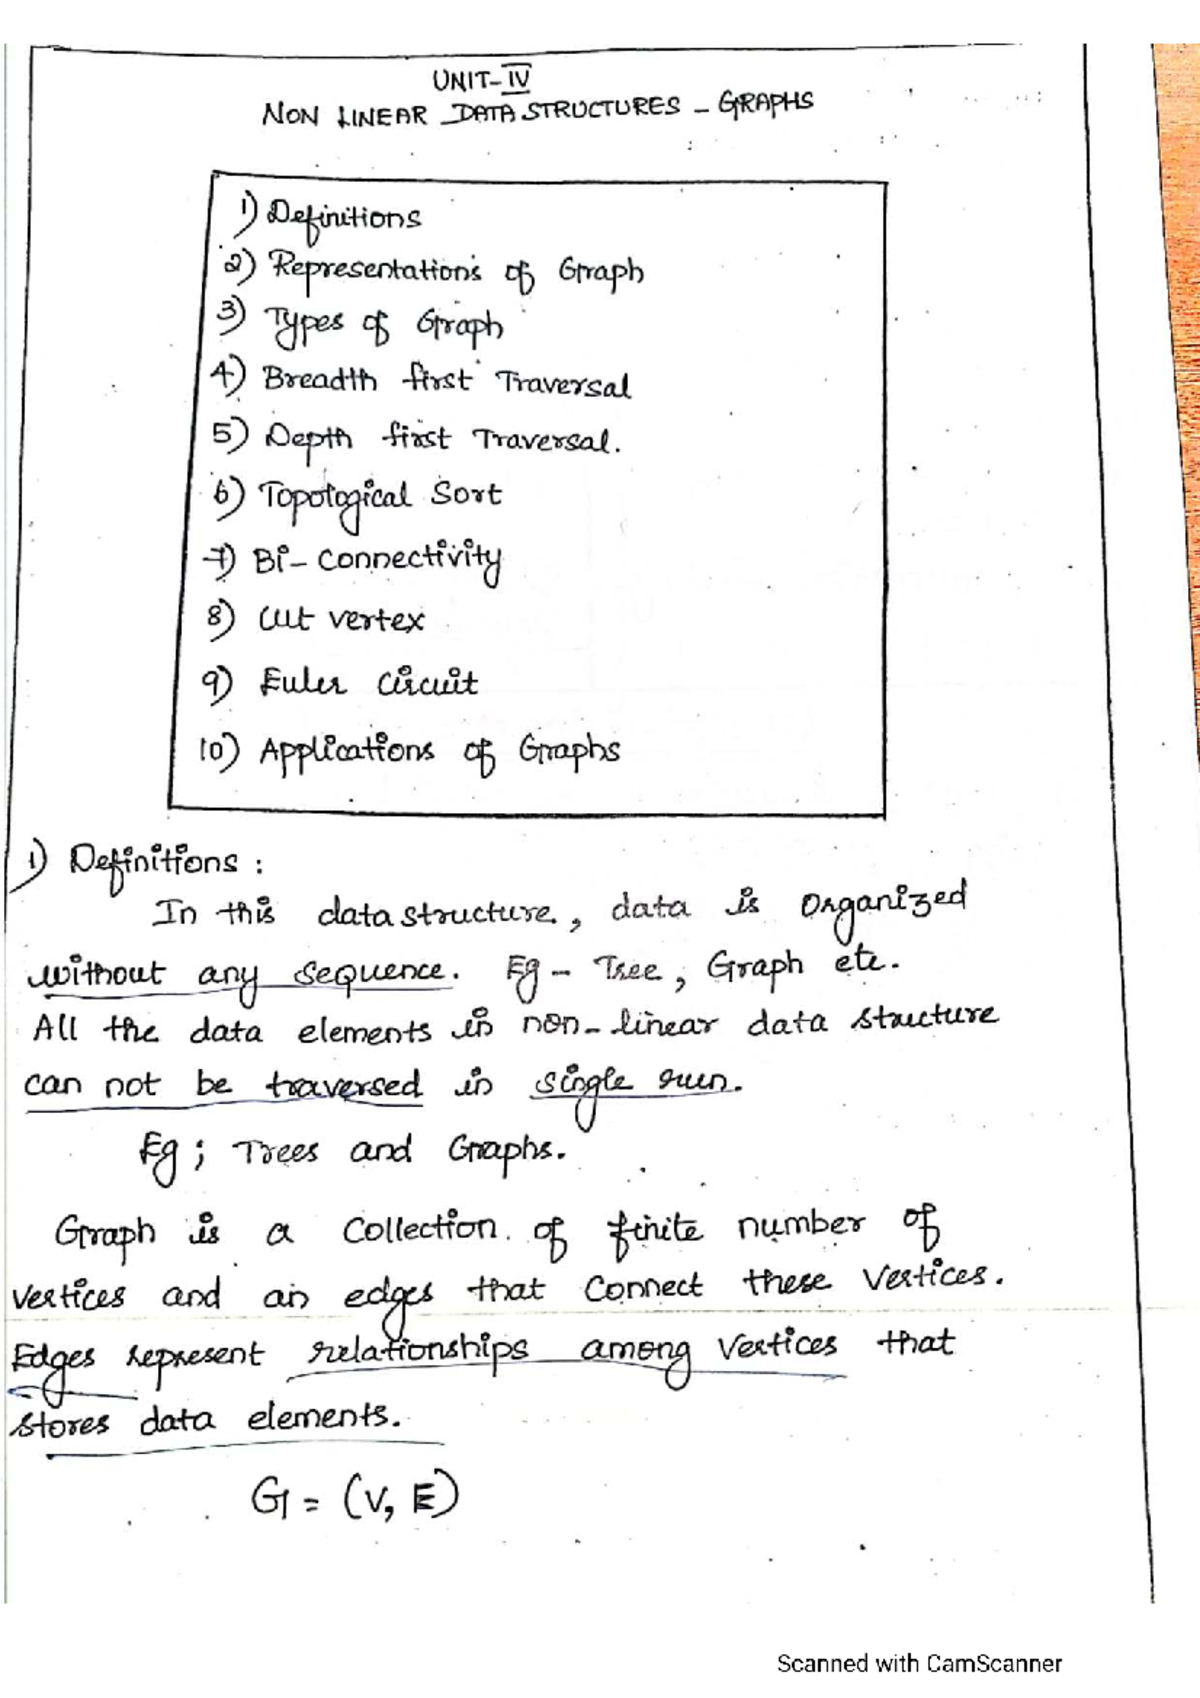 UNIT-IV
NON LINEAR DATA STRUCTURES - GRAPHS
1) Definitions
2) Representations of Graph
3) Types of Graph
4) Breadth first Traversal
5) Depth first Traversal.
6) Topological Sort
7) Bi-Connectivity
8) Cut vertex
9) Euler Circuit
10) Applications of Graphs
1) Definitions :
In this data structure, data is Organized
without any sequence. Eg - Tree, Graph etc.
All the data elements in non-linear data structure
can not be traversed in single run.
Eg ; Trees and Graphs.
Graph is a Collection of finite number of
vertices and an edges that Connect these Vertices.
Edges represent relationships among Vertices that
stores data elements.
G = (V, E)
Scanned with CamScanner